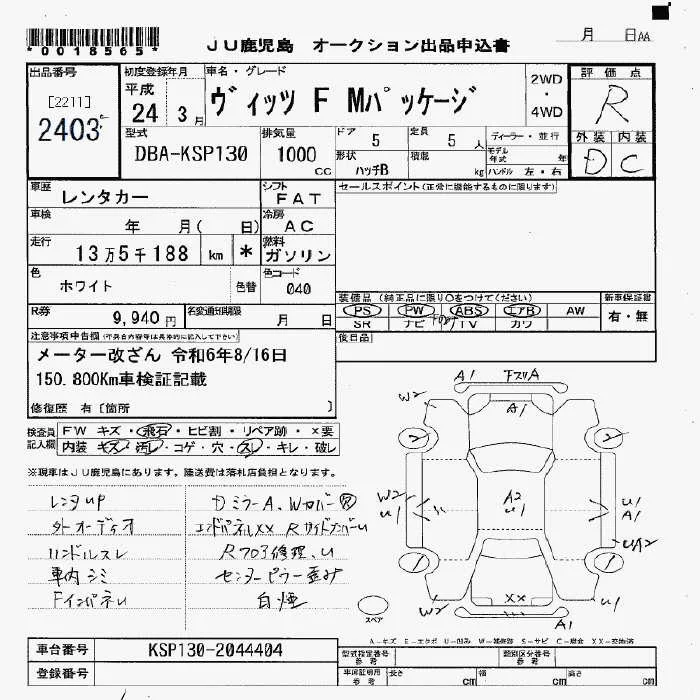 *0018565*
JU鹿児島 オークション出品申込書
月 日 AA
出品番号
[2211]
2403
初度登録年月
平成
24 3月
車名・グレード
ヴィッツ F Mパッケージ
2WD
・
4WD
評価点
R
外装 内装
D C
型式
DBA-KSP130
排気量
1000
CC
ドア 5
定員 5 人
形状
ハッチB
積載
kg
ディーラー・並行
モデル年式 年
ハンドル 左・右
車歴
レンタカー
シフト
FAT
セールスポイント(正常に機能するものに限ります)
車検
年 月( 日)
冷房
AC
走行
13万5千188 km *
燃料
ガソリン
色
ホワイト
色替
色コード
040
装備品(純正品に限り〇をつけてください)
新車保証書
PS PW ABS エアB AW
SR ナビ TV カワ
有・無
R券
9,940円
名変通知期限
月 日
後日品
注意事項申告欄
メーター改ざん 令和6年8/16日
150.800Km車検証記載
修復歴 有〔箇所 〕
検査員記入欄
FW キズ・飛石・ヒビ割・リペア跡・×要
内装 キズ・汚レ・コゲ・穴・スレ・キレ・破レ
※現車はJU鹿児島にあります。陸送費は落札店負担となります。
レンタUP
外オーディオ
ハンドルスレ
車内シミ
FインパネU
DミラーA、Wカバー
エンドパネルXX
Rフロア修理、U
センターピラー歪み
白煙
A1 FスリA
W2 A1
2 2
W2 U1
A2 U1
U1 A1
UA2
1 1
XX
W2 U1
A1
スペア
A-キズ E-エクボ U-凹み W-補修跡 S-サビ C-腐食 XX-交換済
車台番号
KSP130-2044404
登録番号
型式指定番号
参考
類別区分番号
参考
車庫証明用
参考
長さ cm
幅 cm
高さ cm